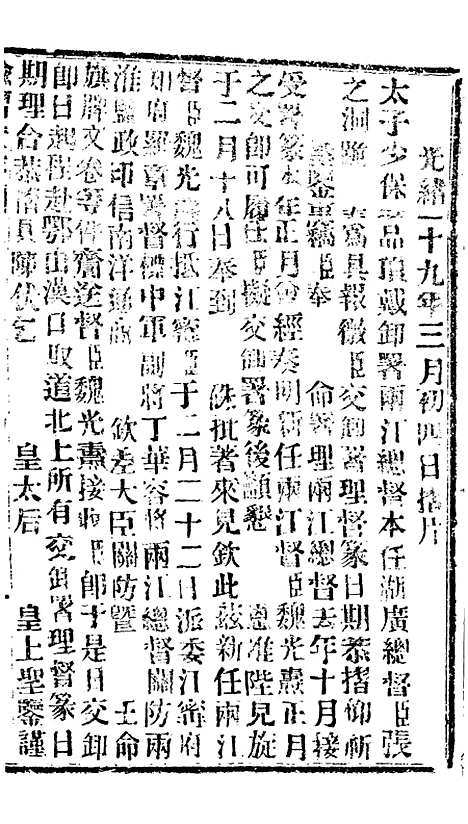 光緒二十九年三月初四日摺片
太子少保品頂戴卸署兩江總督本任湖廣總督臣張
之洞跪奏爲具報微臣交卸署理督篆日期恭摺仰祈
聖鑒事竊臣奉命署理兩江總督去年十月接
受署篆本年正月會經奏明新任兩江督臣魏光燾正月
之交卸可履任臣擬交卸署篆後籲懇恩准陛見旋
于二月十八日奉到硃批著來見欽此茲新任兩江
督臣魏光燾行抵江寧臣于二月二十二日派委江寧府
知府羅章署督標中軍副將丁華容將兩江總督關防兩
淮鹽政印信南洋欽差大臣關防暨王命
旗牌文卷等件齎送督臣魏光燾接收臣卽于是日交卸
卽日起程赴鄂由漢口取道北上所有交卸署理督篆日
期理合恭摺具陳伏乞皇太后皇上聖鑒謹